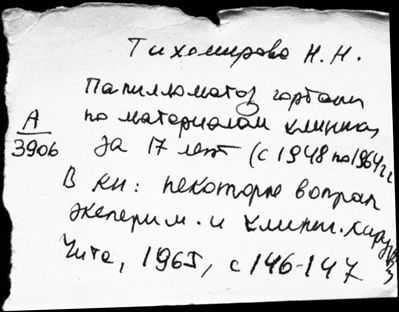 Тихомирова Н.Н.
Папилломатоз гортани
по материалам клиники
за 17 лет (с 1948 по 1964 гг
А
3906
В кн: некоторые вопросы
эксперим. и клинич. хирур
Чита, 1965, с 146-147